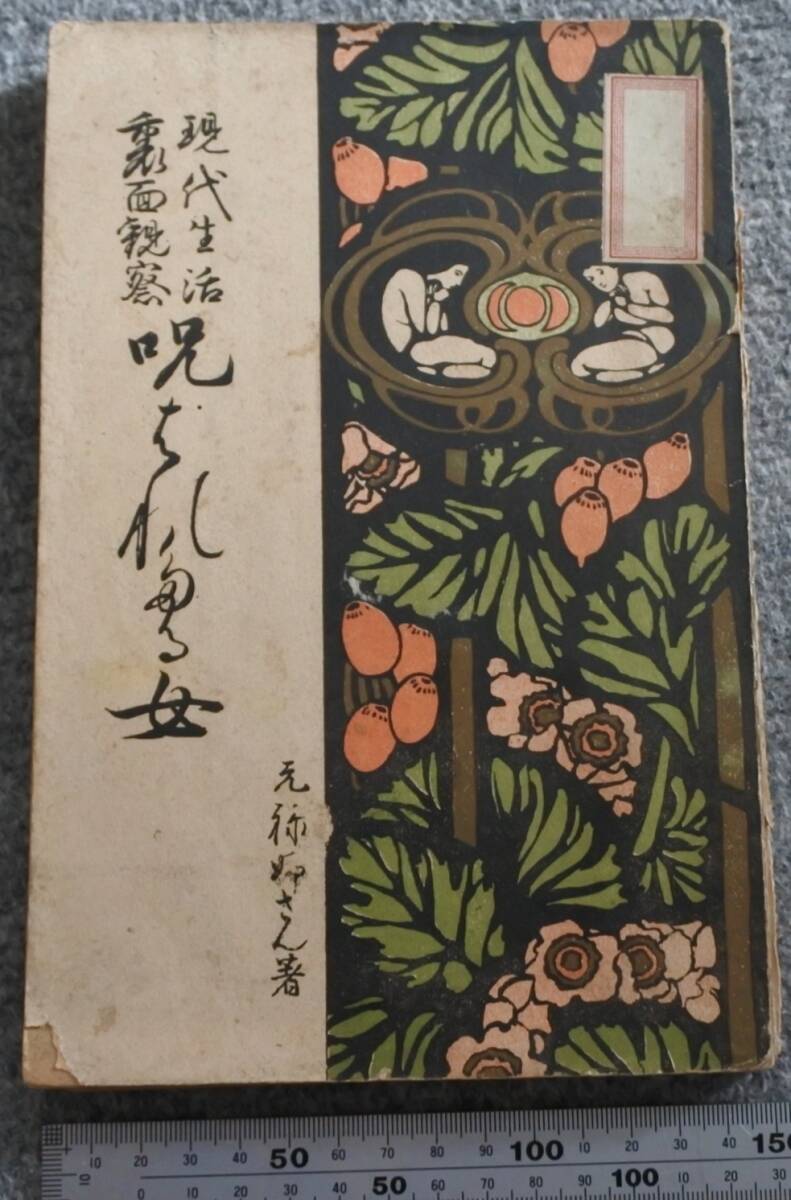 現代生活
裏面観察
呪はれたる女
元禄姉さん著
10 20 30 40 50 60 70 80 90 100 10 20 30 40 150
10 0 10 20 30 40 50 60 70 80 90 100 10 20